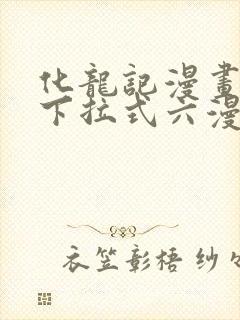 化龍記漫畫
下拉式六漫
衣笠彰梧 纱々